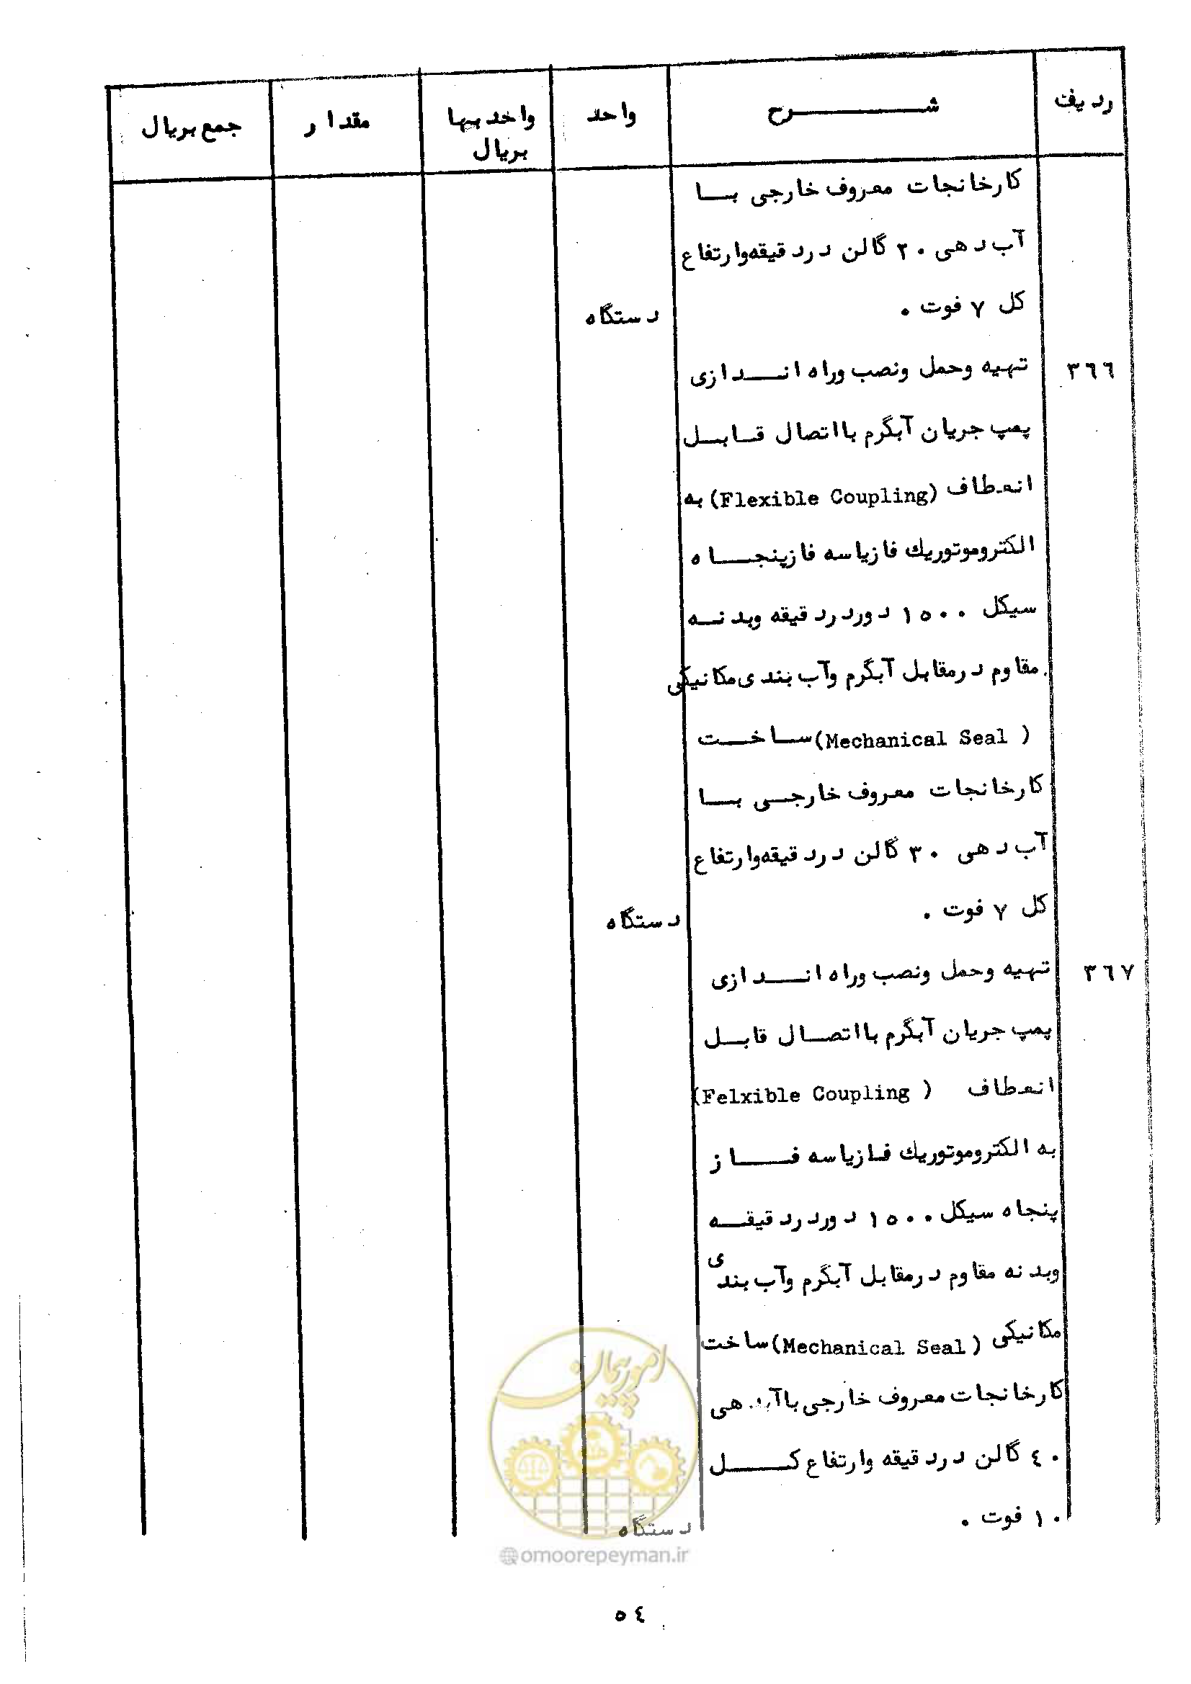 ردیف شرح واحد واحد بها مقدار جمع بریال
بریال
کارخانجات معروف خارجی با
آب دهی ۲۰ گالن در دقیقه وارتفاع
کل ۷ فوت . دستگاه
۳٦٦ تهیه وحمل ونصب وراه اندازی
پمپ جریان آبگرم بااتصال قابل
انعطاف (Flexible Coupling) به
الکتروموتوریك فازیاسه فازپنجاه
سیکل ۱۵۰۰ دوردر دقیقه وبدنه
مقاوم درمقابل آبگرم وآب بندی مکانیکی
(Mechanical Seal) ساخت
کارخانجات معروف خارجی با
آب دهی ۳۰ گالن در دقیقه وارتفاع
کل ۷ فوت . دستگاه
۳٦۷ تهیه وحمل ونصب وراه اندازی
پمپ جریان آبگرم بااتصال قابل
انعطاف (Felxible Coupling)
به الکتروموتوریك فازیاسه فاز
پنجاه سیکل ۱۵۰۰ دوردر دقیقه
وبدنه مقاوم درمقابل آبگرم وآب بندی
مکانیکی (Mechanical Seal) ساخت
کارخانجات معروف خارجی باآبدهی
٤۰ گالن در دقیقه وارتفاع کل
۱۰ فوت . دستگاه
امور پیمان
@omoorepeyman.ir
٥٤